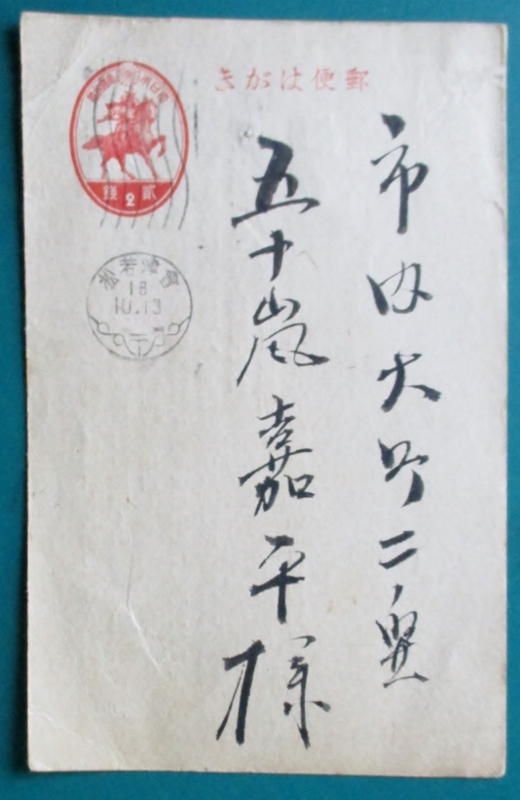 郵便はがき
市内大町二ノ
五十嵐嘉平様
貳2錢
會津若松
18
10.13